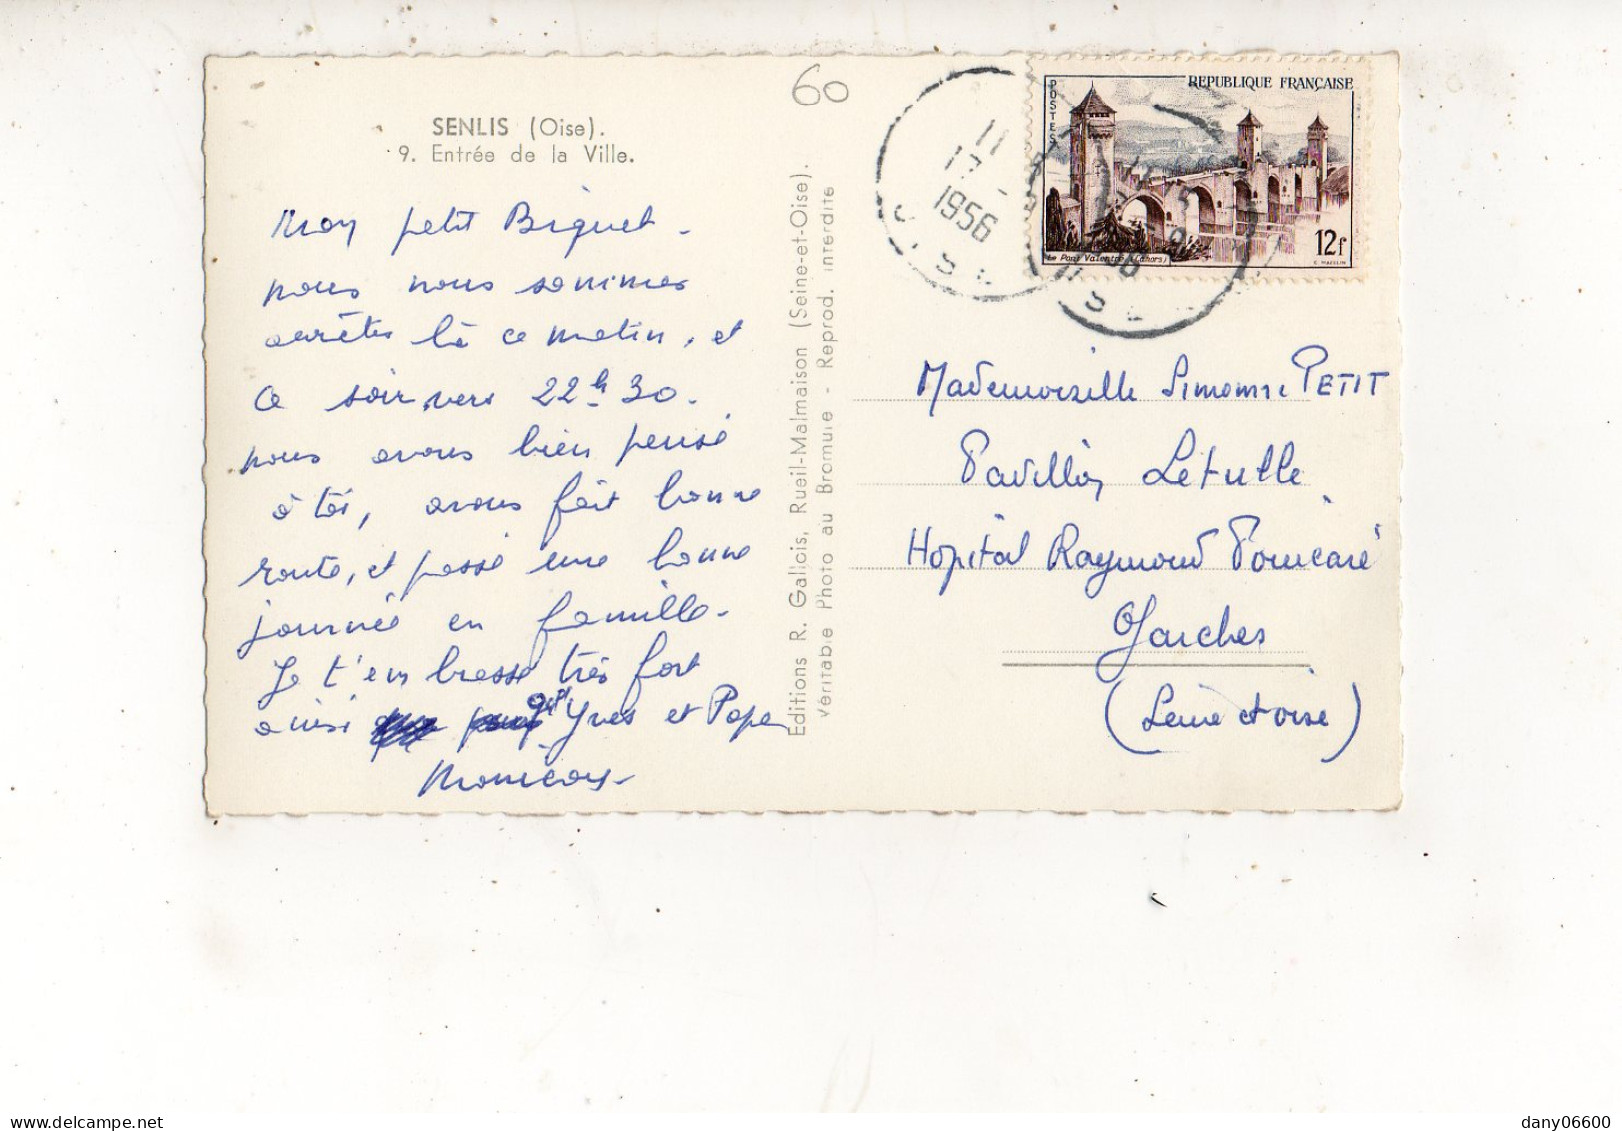 60
SENLIS (Oise).
9. Entrée de la Ville.
Mon petit Biquet -
nous nous sommes
arrêtés là ce matin, et
ce soir vers 22h30.
nous avons bien pensé
à toi, avons fait bonne
route, et passé une bonne
journée en famille -
Je t'embrasse très fort
ainsi que Yves et Papa
Editions R. Gallois, Rueil-Malmaison (Seine-et-Oise).
Véritable Photo au Bromure - Reprod. interdite
11
17 -
1956
REPUBLIQUE FRANÇAISE
POSTES
12f
Le Pont Valentré (Cahors)
Mademoiselle Simonne PETIT
Pavillon Letulle
Hopital Raymond Poincaré
Garches
(Seine et oise)
dany06600